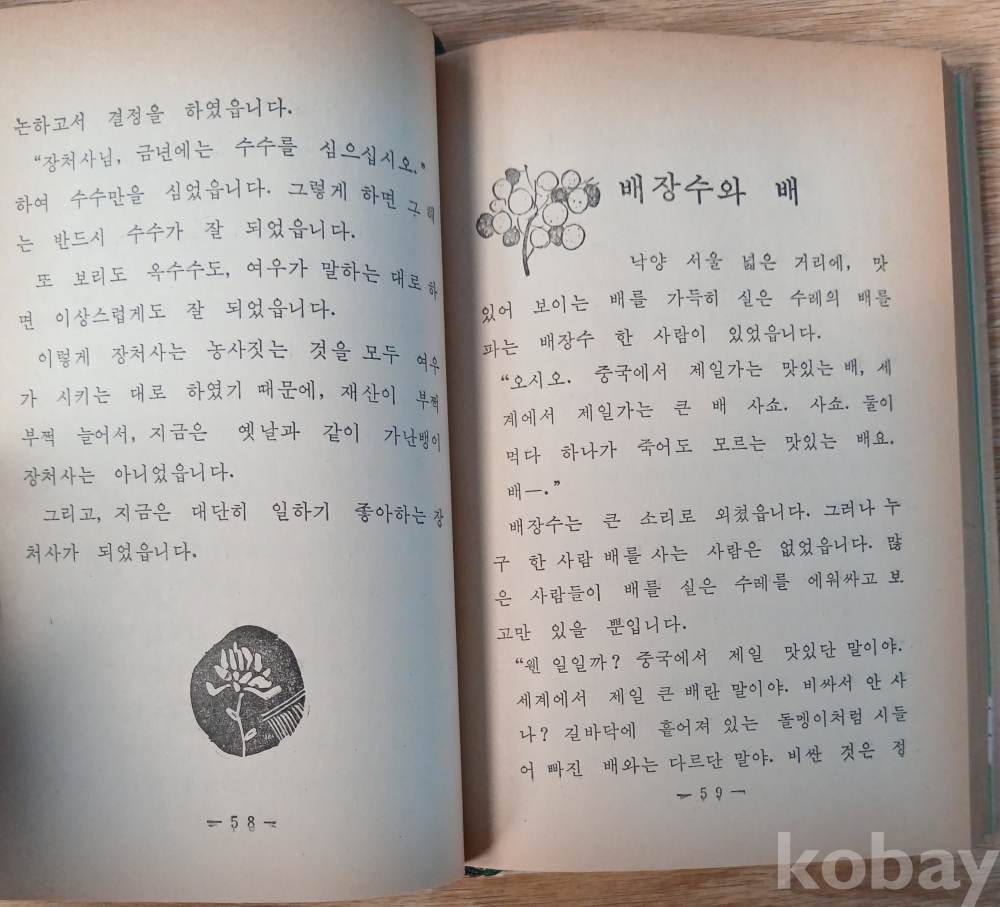 논하고서 결정을 하였읍니다.
“장처사님, 금년에는 수수를 심으십시오.”
하여 수수만을 심었읍니다. 그렇게 하면 그 해
는 반드시 수수가 잘 되었읍니다.
또 보리도 옥수수도, 여우가 말하는 대로 하
면 이상스럽게도 잘 되었읍니다.
이렇게 장처사는 농사짓는 것을 모두 여우
가 시키는 대로 하였기 때문에, 재산이 부쩍
부쩍 늘어서, 지금은 옛날과 같이 가난뱅이
장처사는 아니었읍니다.
그리고, 지금은 대단히 일하기 좋아하는 장
처사가 되었읍니다.
— 58 —
배장수와 배
낙양 서울 넓은 거리에, 맛
있어 보이는 배를 가득히 실은 수레의 배를
파는 배장수 한 사람이 있었읍니다.
“오시오. 중국에서 제일가는 맛있는 배, 세
계에서 제일가는 큰 배 사쇼. 사쇼. 둘이
먹다 하나가 죽어도 모르는 맛있는 배요.
배—.”
배장수는 큰 소리로 외쳤읍니다. 그러나 누
구 한 사람 배를 사는 사람은 없었읍니다. 많
은 사람들이 배를 실은 수레를 에워싸고 보
고만 있을 뿐입니다.
“웬 일일까? 중국에서 제일 맛있단 말이야.
세계에서 제일 큰 배란 말이야. 비싸서 안 사
나? 길바닥에 흩어져 있는 돌멩이처럼 시들
어 빠진 배와는 다르단 말야. 비싼 것은 정
— 59 —
kobay